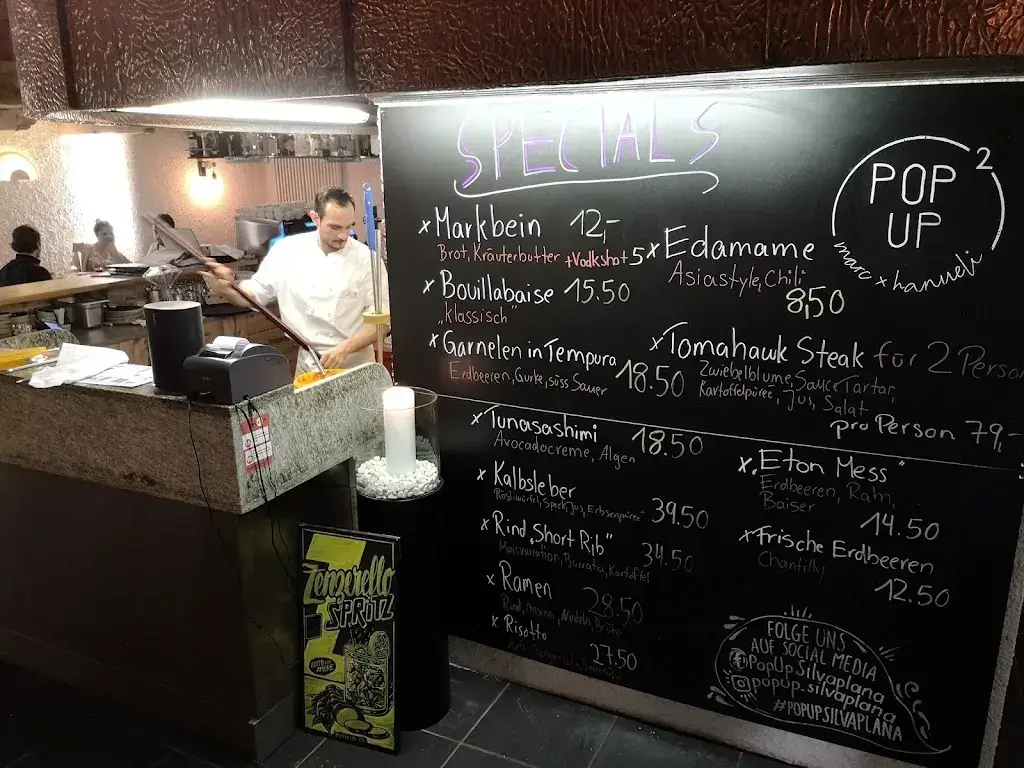 SPECIALS
POP
UP
2
marc x hanueli
x Markbein 12,-
Brot, Kräuterbutter +Vodkshot 5
x Bouillabaise 15.50
"Klassisch"
x Garnelen in Tempura 18.50
Erdbeeren, Gurke, süss Sauer
x Edamame
Asiastyle, Chili
8,50
x Tomahawk Steak für 2 Person
Zwiebelblume, Sauce Tartar,
Kartoffelpüree, Jus, Salat
pro Person 79,-
x Tunasashimi 18.50
Avocadocreme, Algen
x Kalbsleber
Röstiwürfel, Speck, Jus, Erbsenpüree 39.50
x Rind "Short Rib" 34.50
Maisvariation, Burrata, Kartoffel
x Ramen 28.50
Rind, Nudeln, Brühe
x Risotto 27.50
x "Eton Mess"
Erdbeeren, Rahm,
Baiser
14.50
x Frische Erdbeeren
Chantilly
12.50
FOLGE UNS
AUF SOCIAL MEDIA
PopUp.Silvaplana
popup_silvaplana
#POPUPSILVAPLANA
Zenzerello
SPRITZ